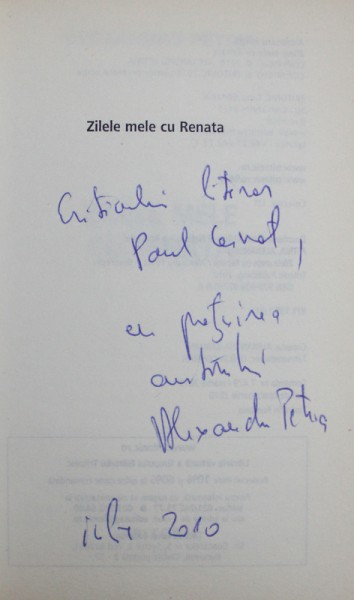 Zilele mele cu Renata
Criticului literar
Paul Cernat,
cu prețuirea
autorului
Alexandru Petria
iulie 2010